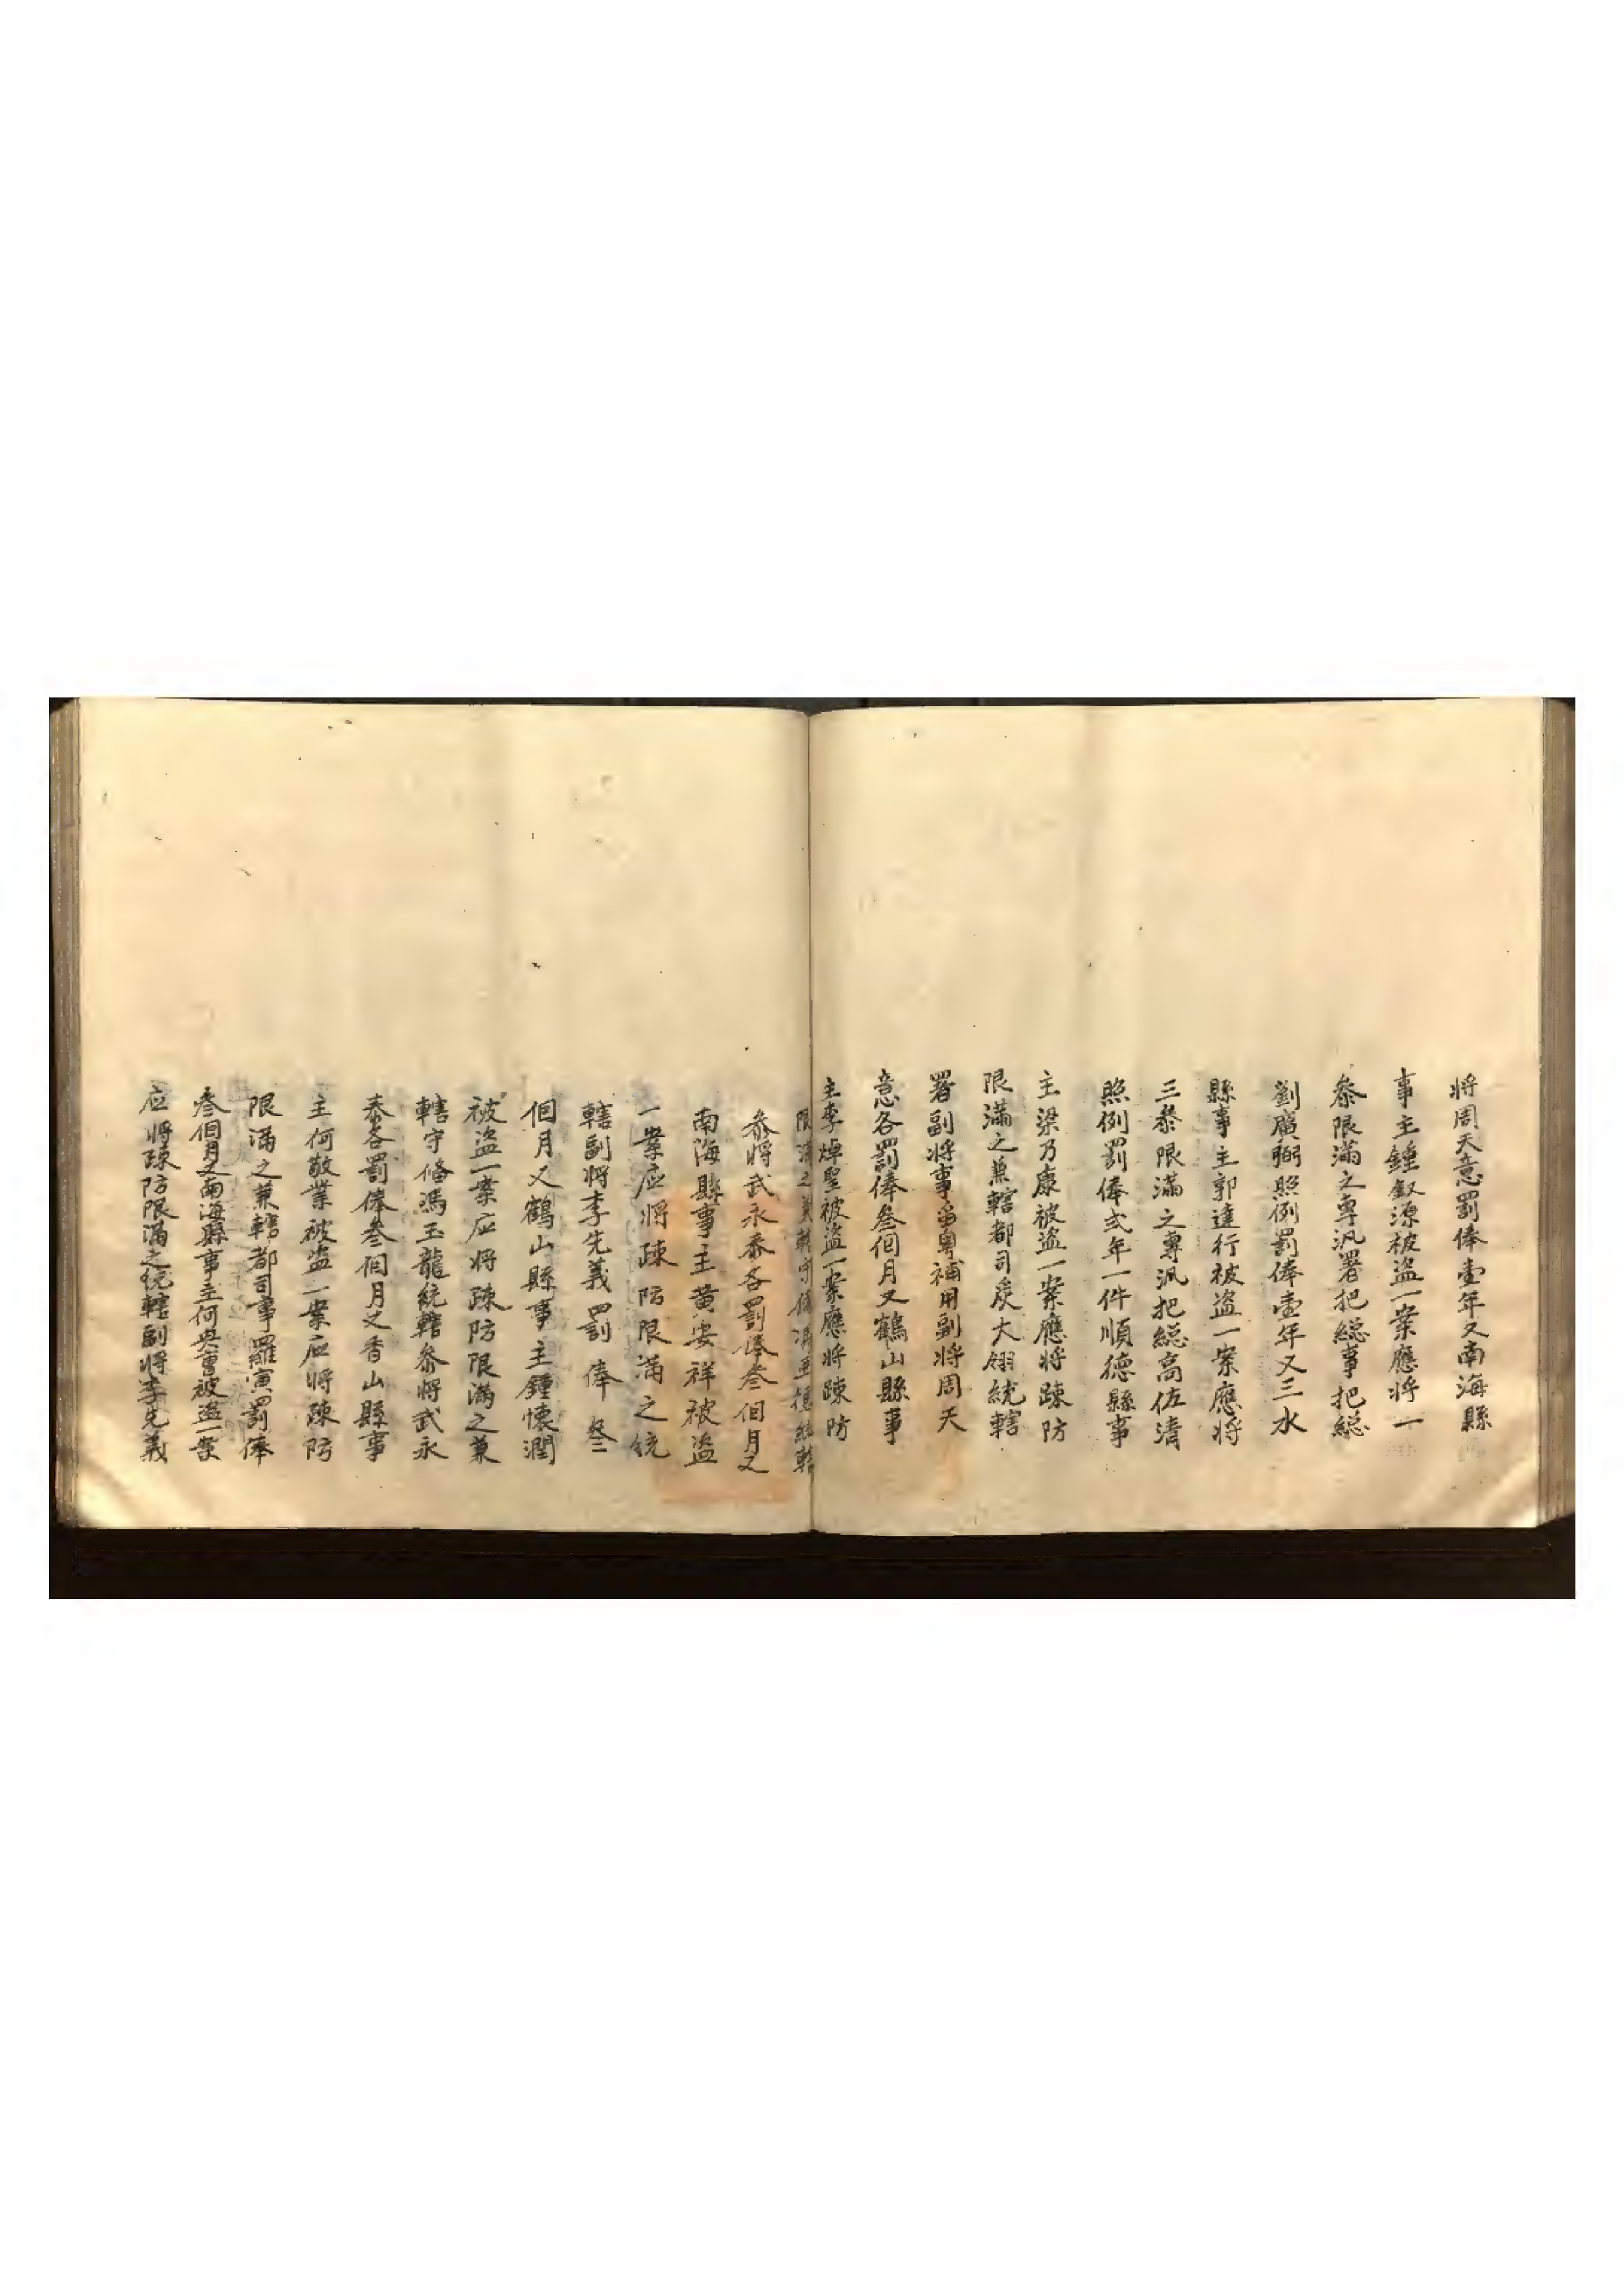 将周天意罰俸壹年又南海縣
事主鍾叙源被盜一案應将一
叅限滿之專汛署把総事把総
劉廣弼照例罰俸壹年又三水
縣事主郭達行被盜一案應将
三叅限滿之專汛把総高佐清
照例罰俸弍年一件順德縣事
主梁乃康被盜一案應将踈防
限滿之兼轄都司炭大翎統轄
署副将事留粤補用副将周天
意各罰俸叁個月又鶴山縣事
主李焯聖被盜一案應将踈防
限滿之兼轄守俻馮玉龍統轄
叅将武永泰各罰俸叁個月又
南海縣事主黃安祥被盜
一案应将踈防限滿之統
轄副将李先義罰俸叄
個月又鶴山縣事主鍾懷潤
被盜一案应将踈防限滿之兼
轄守俻馮玉龍統轄叅将武永
泰各罰俸叁個月又香山縣事
主何敬業被盜一案应将踈防
限滿之兼轄都司事羅寅罰俸
叁個月又南海縣事主何與曹被盜一案
应将踈防限滿之統轄副将李先義